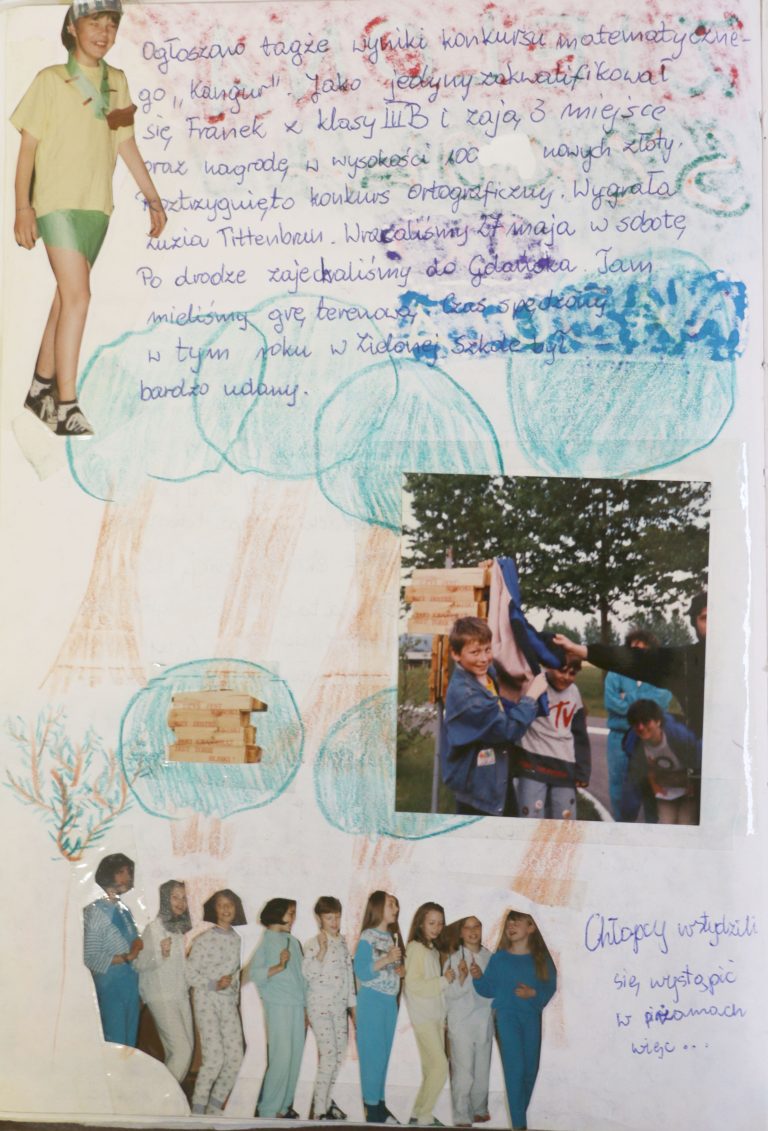 Ogłoszono tagże wyniki konkursu matematyczne-
go „Kangur". Jako jedyny zakwalifikował
się Franek z klasy III B i zają 3 miejsce
oraz nagrodę w wysokości 100 nowych złoty.
Roztrzygnięto konkurs ortograficzny. Wygrała
Zuzia Tittenbrun. Wracaliśmy 27 maja w sobotę
Po drodze zajechaliśmy do Gdańska. Tam
mieliśmy grę terenową. Czas spędzony
w tym roku w Zielonej Szkole był
bardzo udany.
TV
Chłopcy wstydzili
się wystąpić
w piżamach
więc...